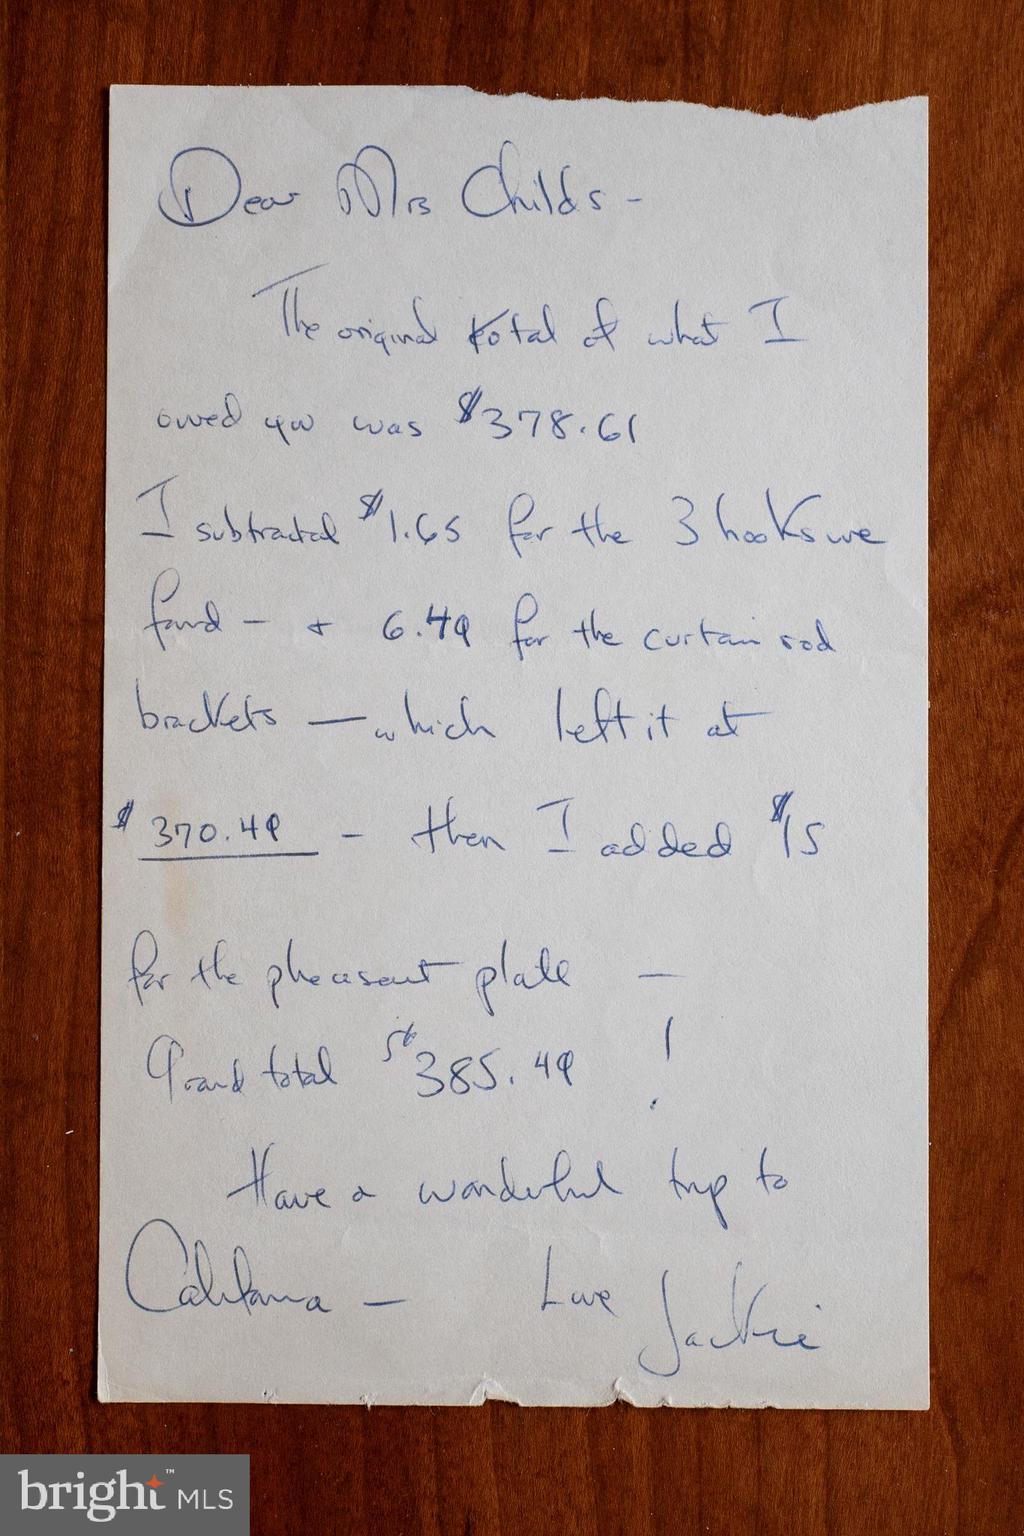 Dear Mrs Childs -
The original total of what I
owed you was $378.61
I subtracted $1.65 for the 3 hooks we
found - + 6.49 for the curtain rod
brackets — which left it at
$370.49 - then I added $15
for the pheasant plate —
Grand total $385.49 !
Have a wonderful trip to
California — Love
Jackie
bright™ MLS